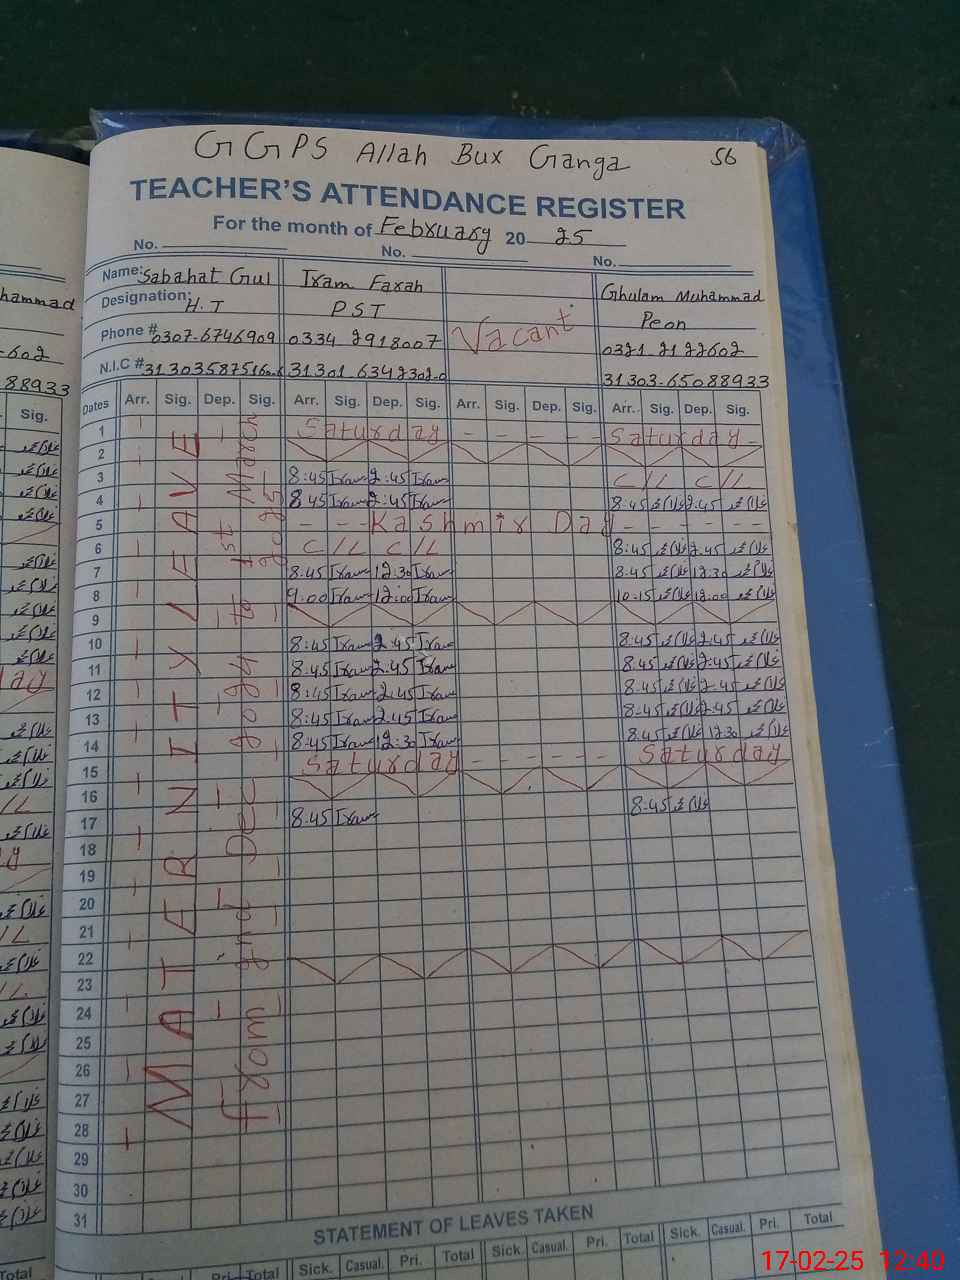 GGPS Allah Bux Ganga 56
TEACHER'S ATTENDANCE REGISTER
For the month of February 2025
No. No. No.
Name: Sabahat Gul Iram Farah Ghulam Muhammad
Designation: H.T PST Vacant Peon
Phone # 0307-6746909 0334 2918007 0321 2122602
N.I.C # 31303-65088933
Dates Arr. Sig. Dep. Sig. Arr. Sig. Dep. Sig. Arr. Sig. Dep. Sig. Arr. Sig. Dep. Sig.
MATERNITY LEAVE
From 2nd Dec 2024 to 1st March 2025
1 Saturday - - - - Saturday -
2
3 8:45 Iram 2:45 Iram C/L C/L
4 8:45 Iram 2:45 Iram 8:45 2:45
5 - - - Kashmir Day - - - -
6 C/L C/L 8:45 2:45
7 8:45 Iram 12:30 Iram 8:45 12:30
8 9:00 Iram 12:00 Iram 10:15 12:00
9
10 8:45 Iram 2:45 Iram 8:45 2:45
11 8:45 Iram 2:45 Iram 8:45 2:45
12 8:45 Iram 2:45 Iram 8:45 2:45
13 8:45 Iram 2:45 Iram 8:45 2:45
14 8:45 Iram 12:30 Iram 8:45 12:30
15 Saturday - - - - - Saturday
16
17 8:45 Iram 8:45
18
19
20
21
22
23
24
25
26
27
28
29
30
31
STATEMENT OF LEAVES TAKEN
Total Sick. Casual. Pri. Total Sick. Casual. Pri. Total Sick. Casual. Pri. Total
hammad
-602
88933
Sig.
17-02-25 12:40